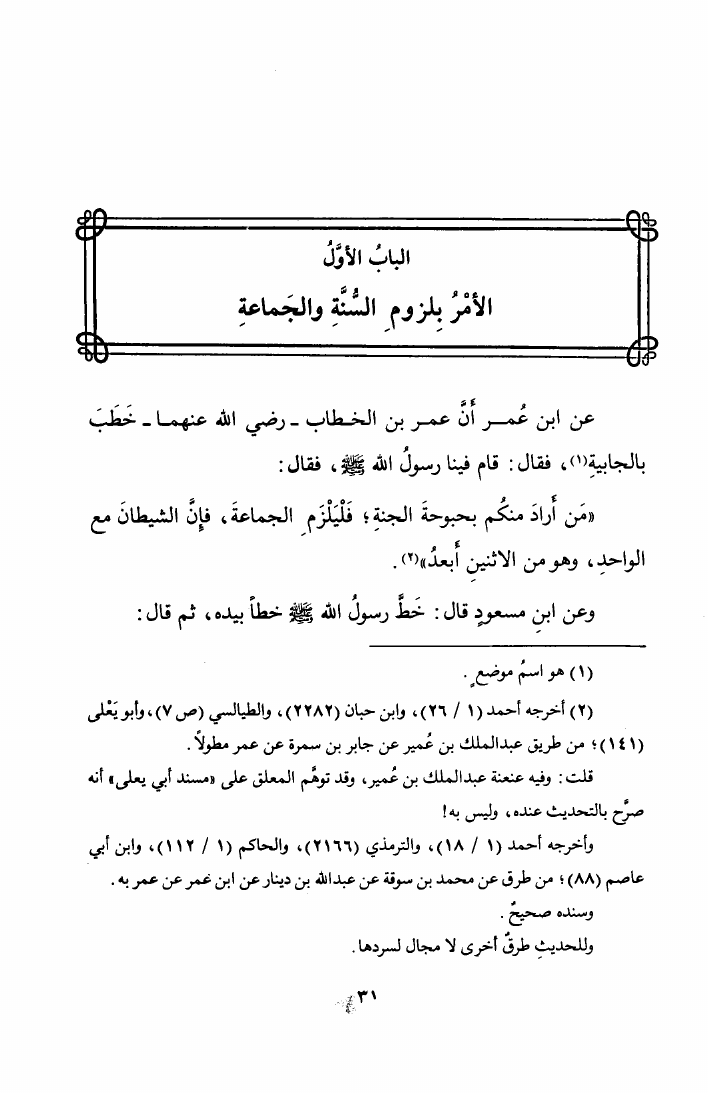 البابُ الأوَّلُ
الأمْرُ بِلزومِ السُّنَّةِ والجَماعةِ
عن ابن عُمـر أنَّ عمر بن الخطاب ـ رضي الله عنهما ـ خَطَبَ
بالجابيةِ(١)، فقال: قام فينا رسولُ الله ﷺ، فقال:
«مَن أرادَ منكُم بحبوحةَ الجنةِ؛ فَلْيَلْزَمِ الجماعةَ، فإنَّ الشيطانَ مع
الواحدِ، وهو من الاثنينِ أبعدُ»(٢).
وعن ابنِ مسعودٍ قال: خَطَّ رسولُ الله ﷺ خطاً بيده، ثم قال:
(١) هو اسمُ موضعٍ.
(٢) أخرجه أحمد (١ / ٢٦)، وابن حبان (٢٢٨٢)، والطيالسي (ص ٧)، وأبو يَعْلى
(١٤١)؛ من طريق عبدالملك بن عُمير عن جابر بن سمرة عن عمر مطولاً.
قلت: وفيه عنعنة عبدالملك بن عُمير، وقد توهَّم المعلق على «مسند أبي يعلى» أنه
صرَّح بالتحديث عنده، وليس به!
وأخرجه أحمد (١ / ١٨)، والترمذي (٢١٦٦)، والحاكم (١ / ١١٢)، وابن أبي
عاصم (٨٨)؛ من طرق عن محمد بن سوقة عن عبدالله بن دينار عن ابن عمر عن عمر به.
وسنده صحيحٌ.
وللحديثِ طرقٌ أخرى لا مجال لسردها.
٣١